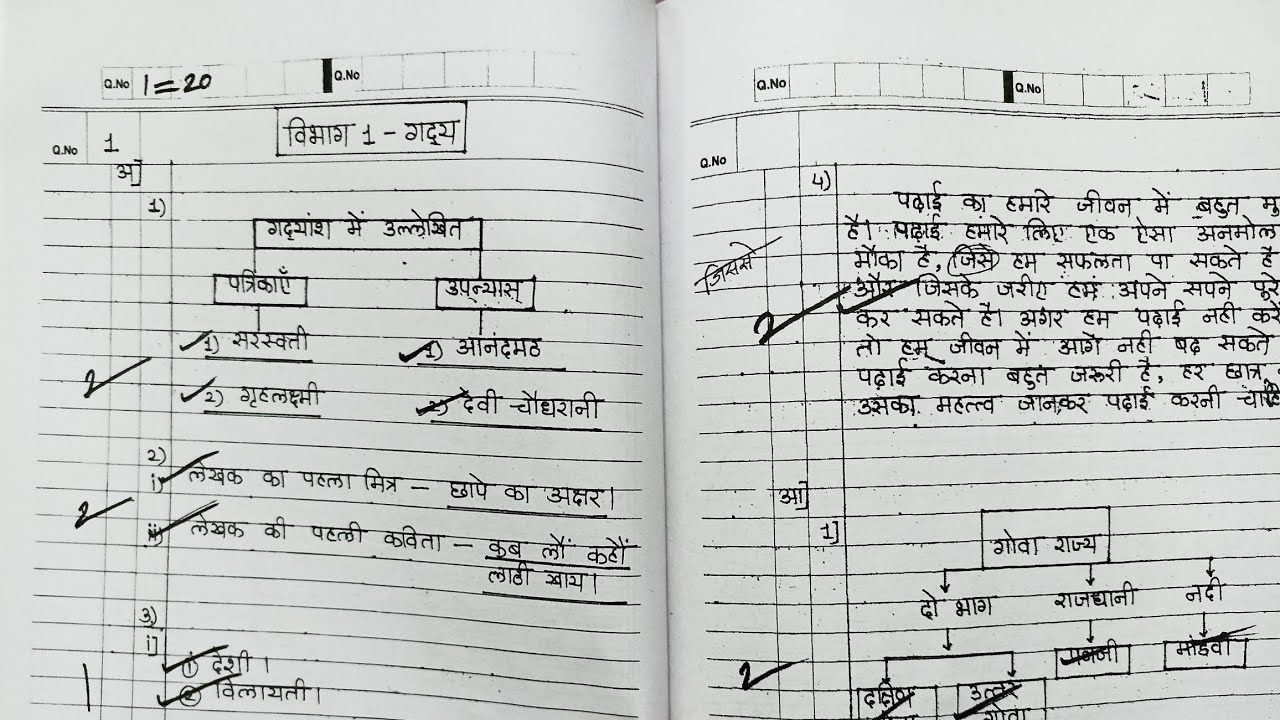 Q.No 1=20 Q.No
विभाग 1 - गद्य
Q.No 1
अ]
1)
गद्यांश में उल्लेखित
पत्रिकाएँ उपन्यास
1) सरस्वती 1) आनंदमठ
2
2) गृहलक्ष्मी 2) देवी चौधरानी
2)
i) लेखक का पहला मित्र - छापे का अक्षर।
2
ii) लेखक की पहली कविता - कब लौं कहौं
लाठी खाय।
3)
i]
① देशी।
② विलायती।
1
Q.No Q.No
Q.No
4)
पढ़ाई का हमारे जीवन में बहुत
है। पढ़ाई हमारे लिए एक ऐसा अनमोल
जिससे
मौका है, जिसे हम सफलता पा सकते है
और जिसके जरीए हम अपने सपने पूरे
2
कर सकते है। अगर हम पढ़ाई नही
तो हम जीवन में आगे नही बढ सकते
पढ़ाई करना बहुत जरूरी है, हर छात्र
उसका महत्त्व जानकर पढाई करनी
आ]
1]
गोवा राज्य
दो भाग राजधानी नदी
पणजी मांडवी
2
दक्षिण उत्तर
गोवा